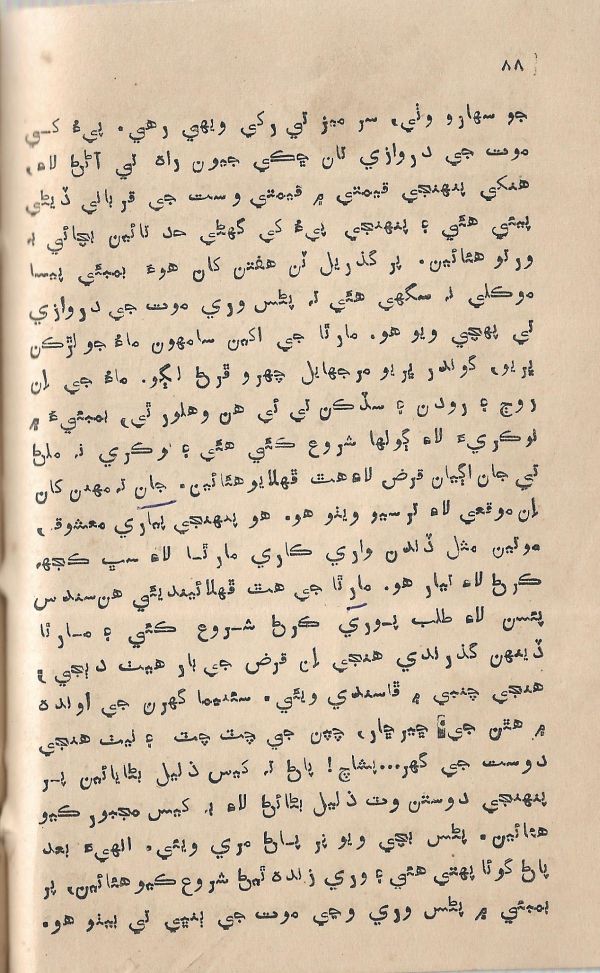 ۸۸
جو سهارو وٺي، سر ميز تي رکي ويهي رهي. پيءُ کـي
موت جي دروازي تان ڇڪي جيون راه تي آڻڻ لاءِ،
هنکي پنهنجي قيمتي ۾ قيمتي وست جي قرباني ڏيڻي
پيئي هئي ۽ پنهنجي پيءُ کي گهڻي حد تائين بچائي بہ
ورتو هئائين. پر گذريل ٽن هفتن کان هوءَ بمبئي پيسا
موڪلي نہ سگهي هئي تہ پڻس وري موت جي دروازي
تي پهچي ويو هو. مارٿا جي اکين سامهون ماءُ جو لڙڪن
ڀريو، گوندر ڀريو مرجهايل چهرو ڦرڻ لڳو. ماءُ جي اِن
روڄ ۽ رودن ۽ سڏڪن تي ئي هن وهلور ٿي، بمبئيءَ ۾
نوڪريءَ لاءِ ڳولها شروع ڪئي هئي ۽ نوڪري نہ ملڻ
تي جان اڳيان قرض لاءِ هٿ ڦهلايو هئائين. جان تہ مهدن کان
اِن موقعي لاءِ ترسيو ويٺو هو. هو پنهنجي پياري معشوق،
موتين مثل ڏندن واري ڪاري مارٿـا لاءِ سڀ ڪجهہ
ڪرڻ لاءِ تيار هو. مارٿا جي هٿ ڦهلائيندي ئي هن سندس
پئسن لاءِ طلب پـوري ڪرڻ شـروع ڪئي ۽ مـارٿا
ڏينهن گذرندي هنجي اِن قرض جي بار هيٺ دٻجي،
هنجي چنبي ۾ ڦاسندي ويئي. سئنيما گهرن جي اونده
۾ هٿن جي ڇيڙڇاڙ، چپن جي چٽ چٽ ۽ نيٺ هنجي
دوست جي گهر...پشاچ! پاڻ تہ کيس ذليل بڻايائين پـر
پنهنجي دوستن وٽ ذليل بڻائڻ لاءِ بہ کيس مجبور ڪيو
هئائين. پڻس بچي ويو پر پـاڻ مري ويئي. انهيءَ بعد
پاڻ گوئا پهتي هئي ۽ وري زنده ٿيڻ شروع ڪيو هئائين، پر
بمبئي ۾ پڻس وري وڃي موت جي ٻنڀي تي بيٺو هو.